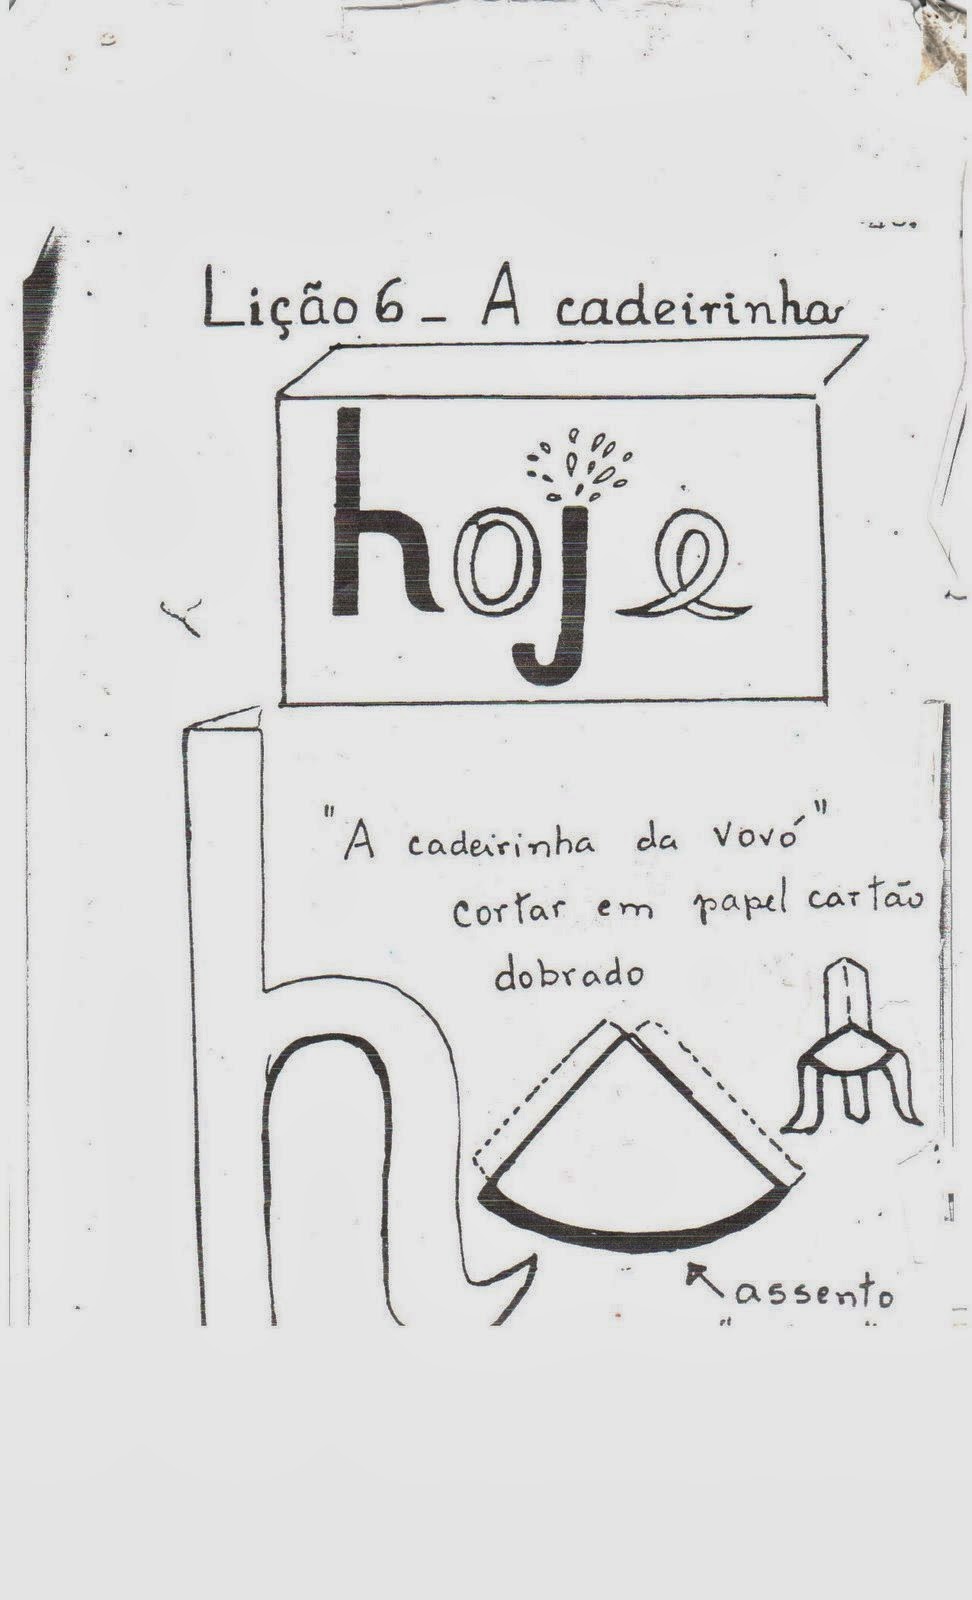 Lição 6 - A cadeirinha
hoje
"A cadeirinha da vovó"
cortar em papel cartão
dobrado
h
assento